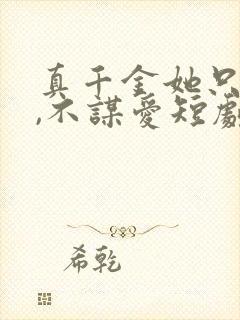 真千金她只
,不謀愛短劇
希乾